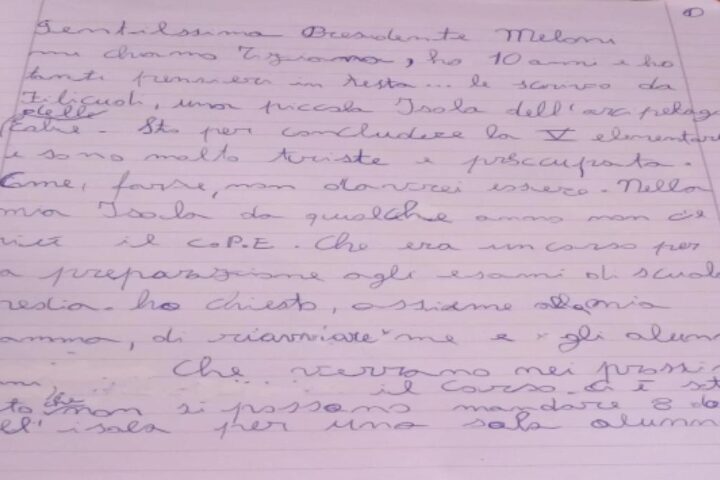 Gentilissima Presidente Meloni
mi chiamo Tiziana, ho 10 anni e ho
tanti pensieri in testa... le scrivo da
Filicudi, una piccola Isola dell'arcipelag
delle Eolie. Sto per concludere la V elementar
e sono molto triste e preoccupata.
Come, forse, non dovrei essere. Nella
mia Isola da qualche anno non c'è
il C.O.P.E. Che era un corso per
a preparazione agli esami di scuola
media. ho chiesto, assieme alla mia
amma, di riavviare me e gli alun
Che verrano nei prossi
il corso. Ci è st
to che non si possono mandare 8 do
ell'isola per una sola alunn